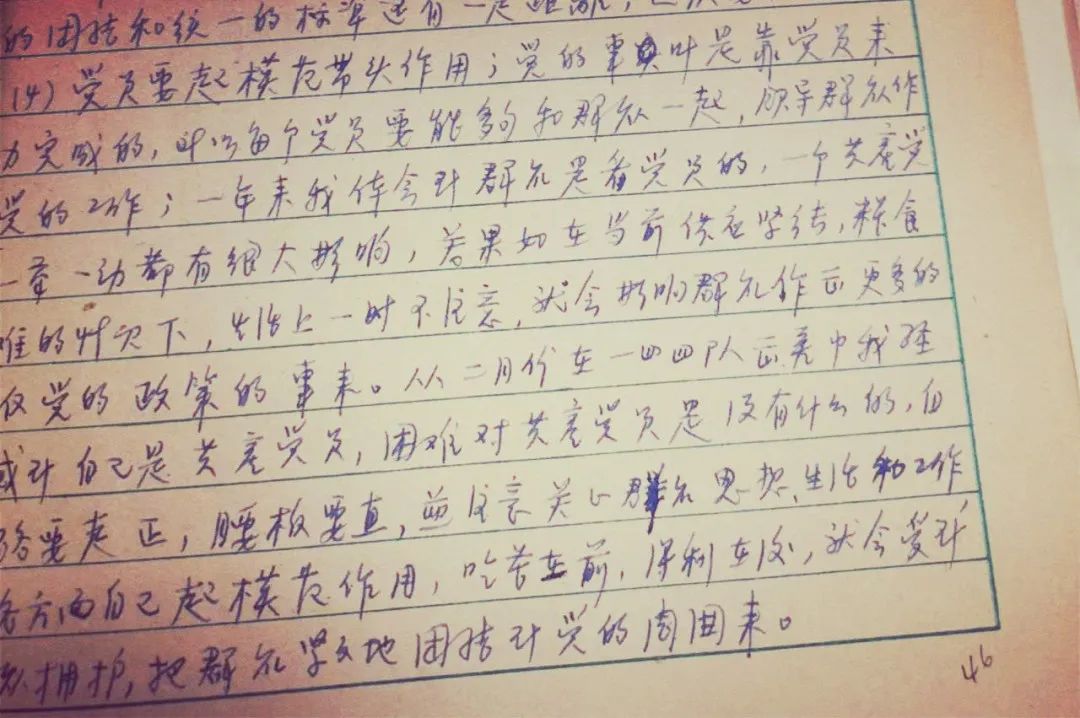 的团结和统一的标准还有一定距离，
(4) 党员要起模范带头作用；党的事业是靠党员来
力完成的，所以每个党员要能够和群众一起，领导群众作
党的工作；一年来我体会到群众是看党员的，一个共产党
一举一动都有很大影响，若果如在当前供应紧结，粮食
难的状况下，生活上一时不注意，就会影响群众作出更多的
反党的政策的事来。从二月份在一四四队正寨中我
或到自己是共产党员，困难对共产党员是没有什么的，但
路要走正，腰板要直，并注意关心群众思想、生活和工作
各方面自己起模范作用，吃苦在前，得利在后，就会受到
众拥护，把群众紧紧地团结到党的周围来。
46